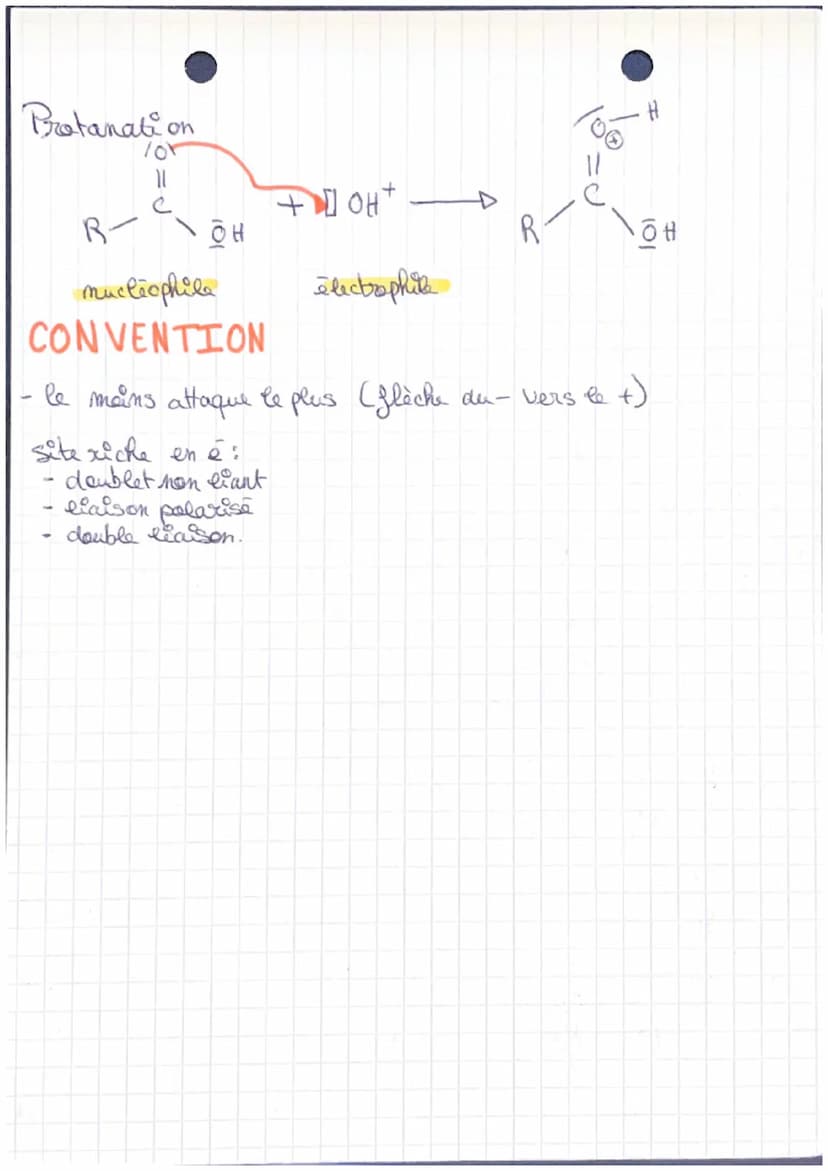 Protonation
|O\ + ▯ OH⁺ → O⊕—H
||
C
R ŌH R C ŌH
nucléophile électrophile
CONVENTION
- le moins attaque le plus (flèche du - vers le +)
site riche en é :
- doublet non liant
- liaison polarisé
- double liaison.